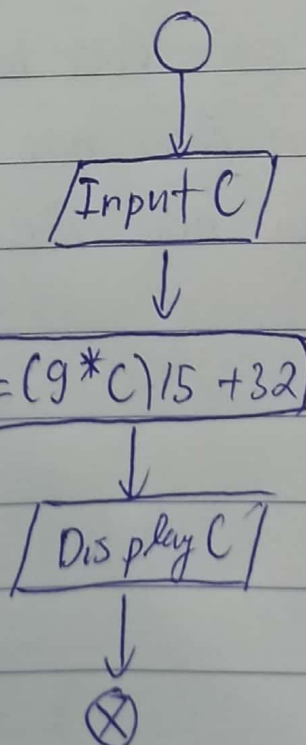 Input C
=(9*C)/5 +32
Display C